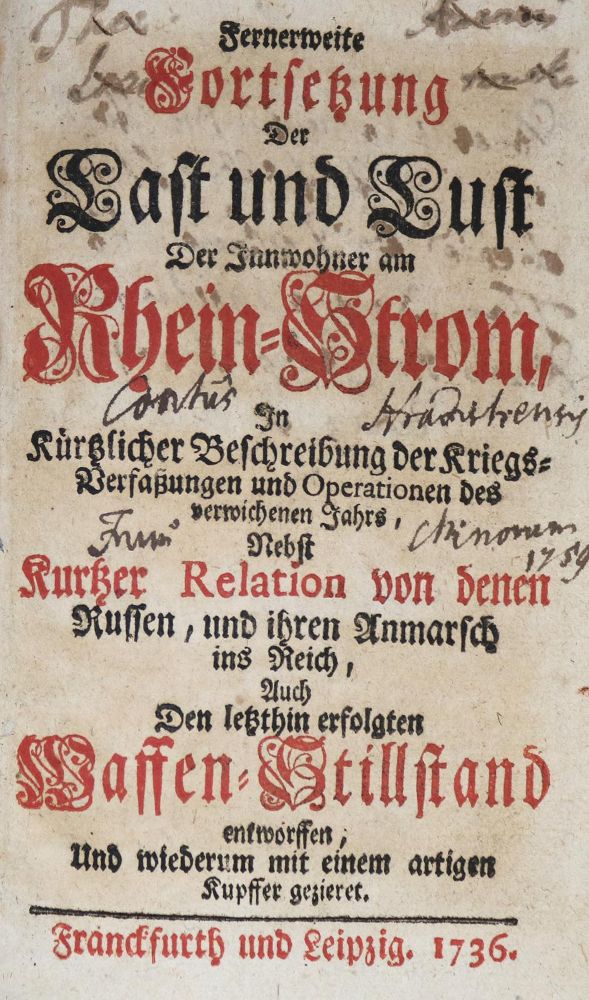 Fernerweite
Fortsetzung
Der
Last und Lust
Der Innwohner am
Rhein-Strom,
In
Kürtzlicher Beschreibung der Kriegs-
Verfaßungen und Operationen des
verwichenen Jahrs,
Nebst
1759
Kurtzer Relation von denen
Russen, und ihren Anmarsch
ins Reich,
Auch
Den letzthin erfolgten
Waffen-Stillstand
entworffen,
Und wiederum mit einem artigen
Kupffer gezieret.
Franckfurth und Leipzig. 1736.